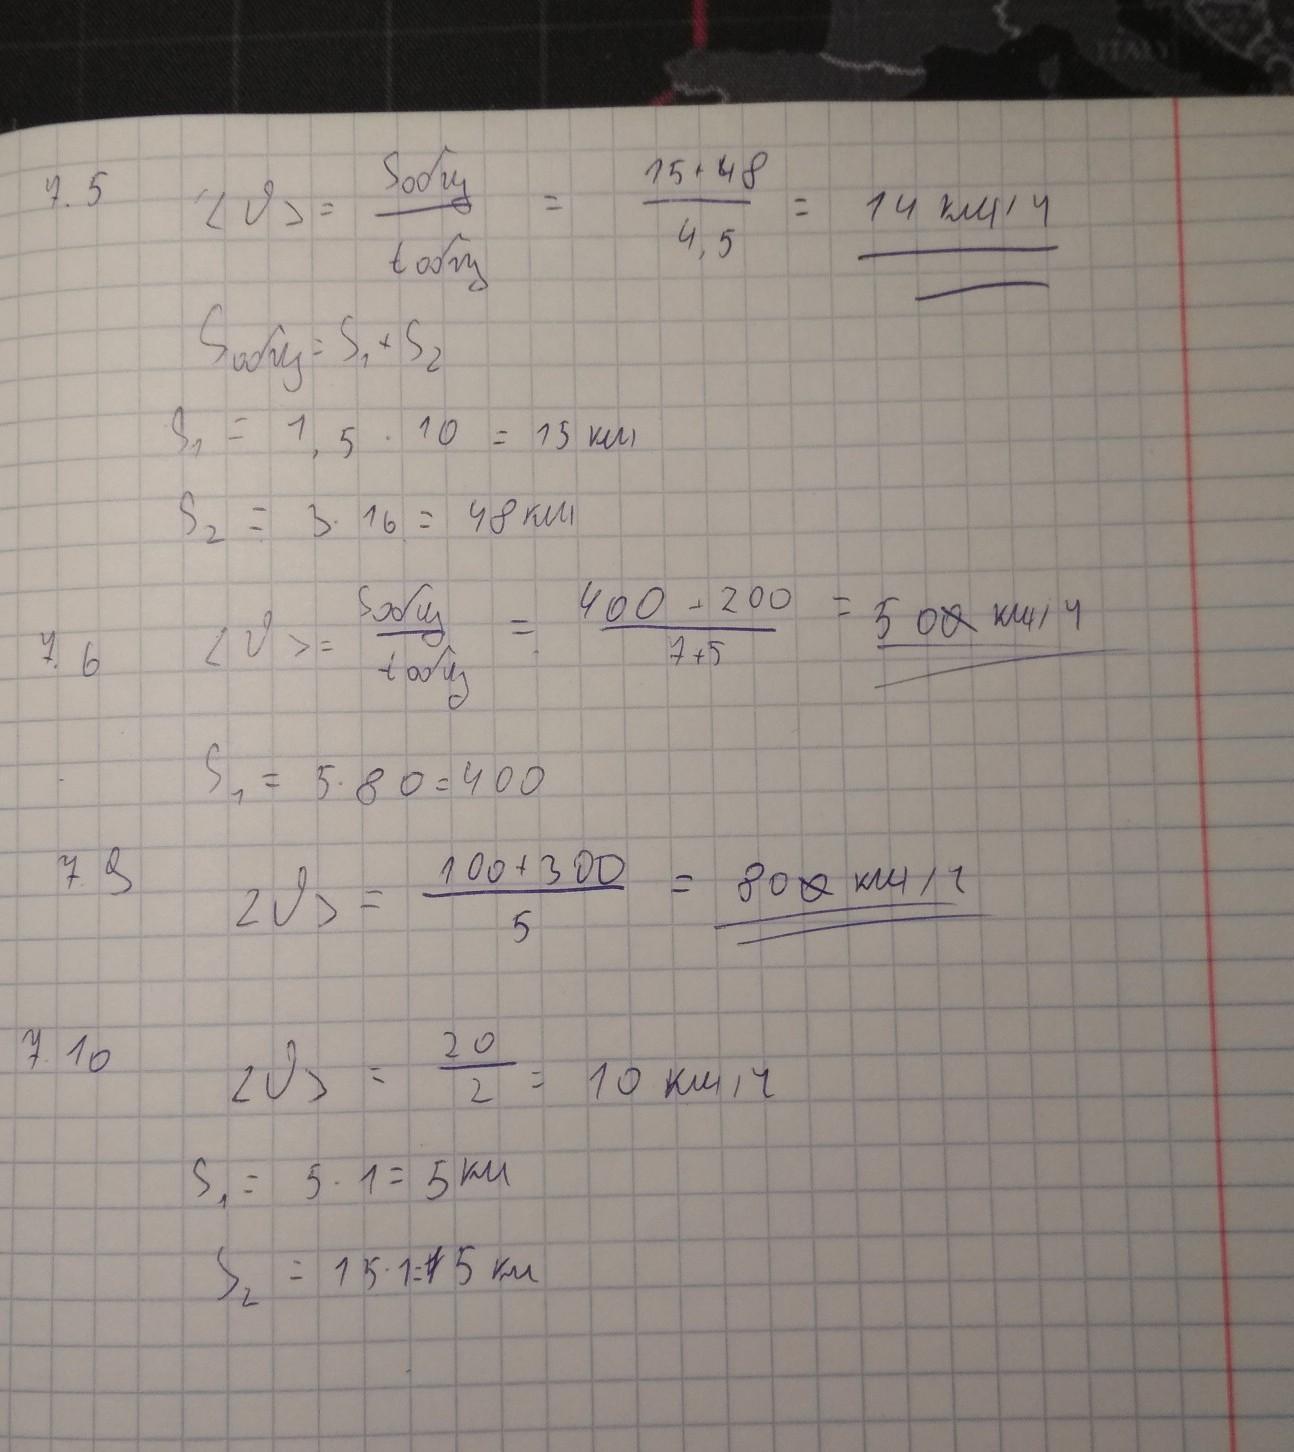 ITALY
7.5 <υ> = Sобщ / tобщ = 15+48 / 4,5 = 14 км/ч
Sобщ = S₁ + S₂
S₁ = 1,5 · 10 = 15 км
S₂ = 3 · 16 = 48 км
7.6 <υ> = Sобщ / tобщ = 400 - 200 / 7+5 = 50 км/ч
S₁ = 5 · 80 = 400
7.9 <υ> = 100+300 / 5 = 80 км/ч
7.10 <υ> = 20 / 2 = 10 км/ч
S₁ = 5 · 1 = 5 км
S₂ = 15 · 1 = 15 км